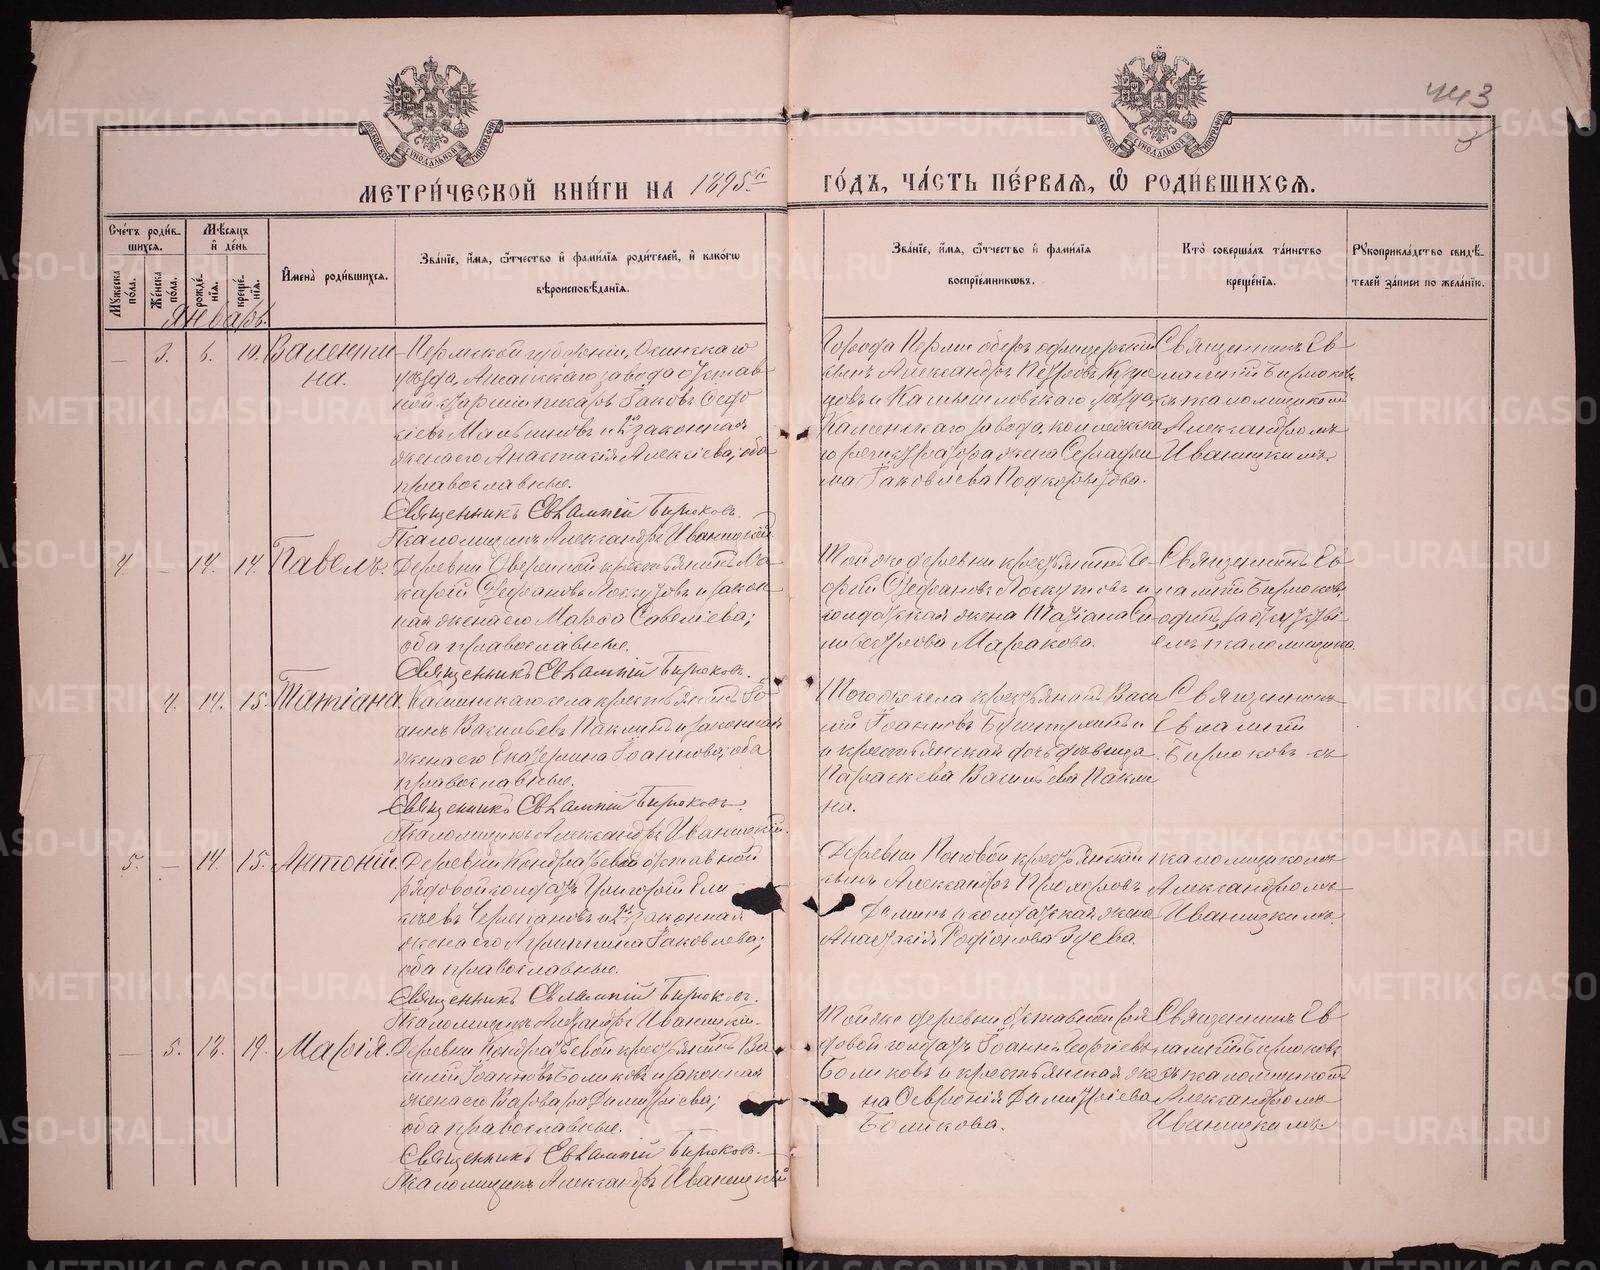 443
3
МЕТРИ́ЧЕСКОЙ КНИ́ГИ НА 1895й ГО́ДЪ, ЧА́СТЬ ПЕ́РВАЯ, Ѡ҆ РОДИ́ВШИХСЯ.
Сче́тъ роди́в-
шихся.
Мꙋ́жеска по́ла.
Же́нска по́ла.
Мѣ́сяцъ и҆ де́нь
рожде́-нїя.
креще́-нїя.
И҆мена̀ роди́вшихся.
Зва́нїе, и҆́мя, ѻ҆́тчество и҆ фами́лїя роди́телей, и҆ како́гѡ
вѣроисповѣ́данїя.
Зва́нїе, и҆́мя, ѻ҆́тчество и҆ фами́лїя
воспрїе́мникѡвъ.
Кто̀ соверша́лъ та́инство
креще́нїя.
Рꙋкоприкла́дство свидѣ́-
телей за́писи по жела́нїю.
Январь.
— 3. 6. 10. Валенти
на.
Пермской губерніи, Осинскаго
уѣзда, завода отстав
ной писарь Іаковъ
и 2я законная
жена его Анастасія Алексіева; оба
православные.
Священникъ Евлампій Бирюковъ.
Псаломщикъ Александръ Иваницкій.
Города Перми оберъ офицерскій
сынъ Александръ Петровъ Кузне
цовъ и Камышловскаго уѣзда,
Каменскаго завода, коллежска
го регистратора жена Серафи
ма Іаковлева Подкорытова.
Священникъ Ев
лампій Бирюковъ
съ псаломщикомъ
Александромъ
Иваницкимъ.
4. — 14. 14. Павелъ.
Деревни крестьянинъ Ма
карій Стефановъ Лоскутовъ и закон
ная жена его Марѳа Савеліева;
оба православные.
Священникъ Евлампій Бирюковъ.
Той же деревни крестьянинъ Ге-
оргій Стефановъ Лоскутовъ и
солдатская жена Татіана Си
Священникъ Ев
лампій Бирюковъ,
псаломщика.
— 4. 14. 15. Татіана.
села крестьянинъ Іо
аннъ Васильевъ Паклинъ и законная
жена его Екатерина Іоаннова; оба
православные.
Священникъ Евлампій Бирюковъ.
Псаломщикъ Александръ Иваницкій.
Того же села крестьянинъ Васи
лій Іоанновъ
и крестьянская дочь дѣвица
Параскева Васильева Пакли
на.
Священникъ
Евлампій
Бирюковъ съ
5. — 14. 15. Антоній.
Деревни Кондратьевой отставной
рядовой солдатъ Григорій Ели
сѣевъ Черепановъ и 2я законная
жена его Агриппина Іаковлева;
оба православные.
Священникъ Евлампій Бирюковъ.
Псаломщикъ Александръ Иваницкій.
Деревни Поповой крестьянскій
сынъ Александръ Прохоровъ
и солдатская жена
Анастасія Родіонова
псаломщикомъ
Александромъ
Иваницкимъ.
— 5. 18. 19. Марія.
Деревни Кондратьевой крестьянинъ Ва
силій Іоанновъ Боликовъ и законная
жена его Варвара Димитріева;
оба православные.
Священникъ Евлампій Бирюковъ.
Псаломщикъ Александръ Иваницкій
Той же деревни отставной ря
довой солдатъ Іоаннъ Георгіевъ
Боликовъ и крестьянская же
на Ѳевронія Димитріева
Боликова.
Священникъ Ев
лампій Бирюковъ
съ псаломщикомъ
Александромъ
Иваницкимъ.
METRIKI.GASO-URAL.RU